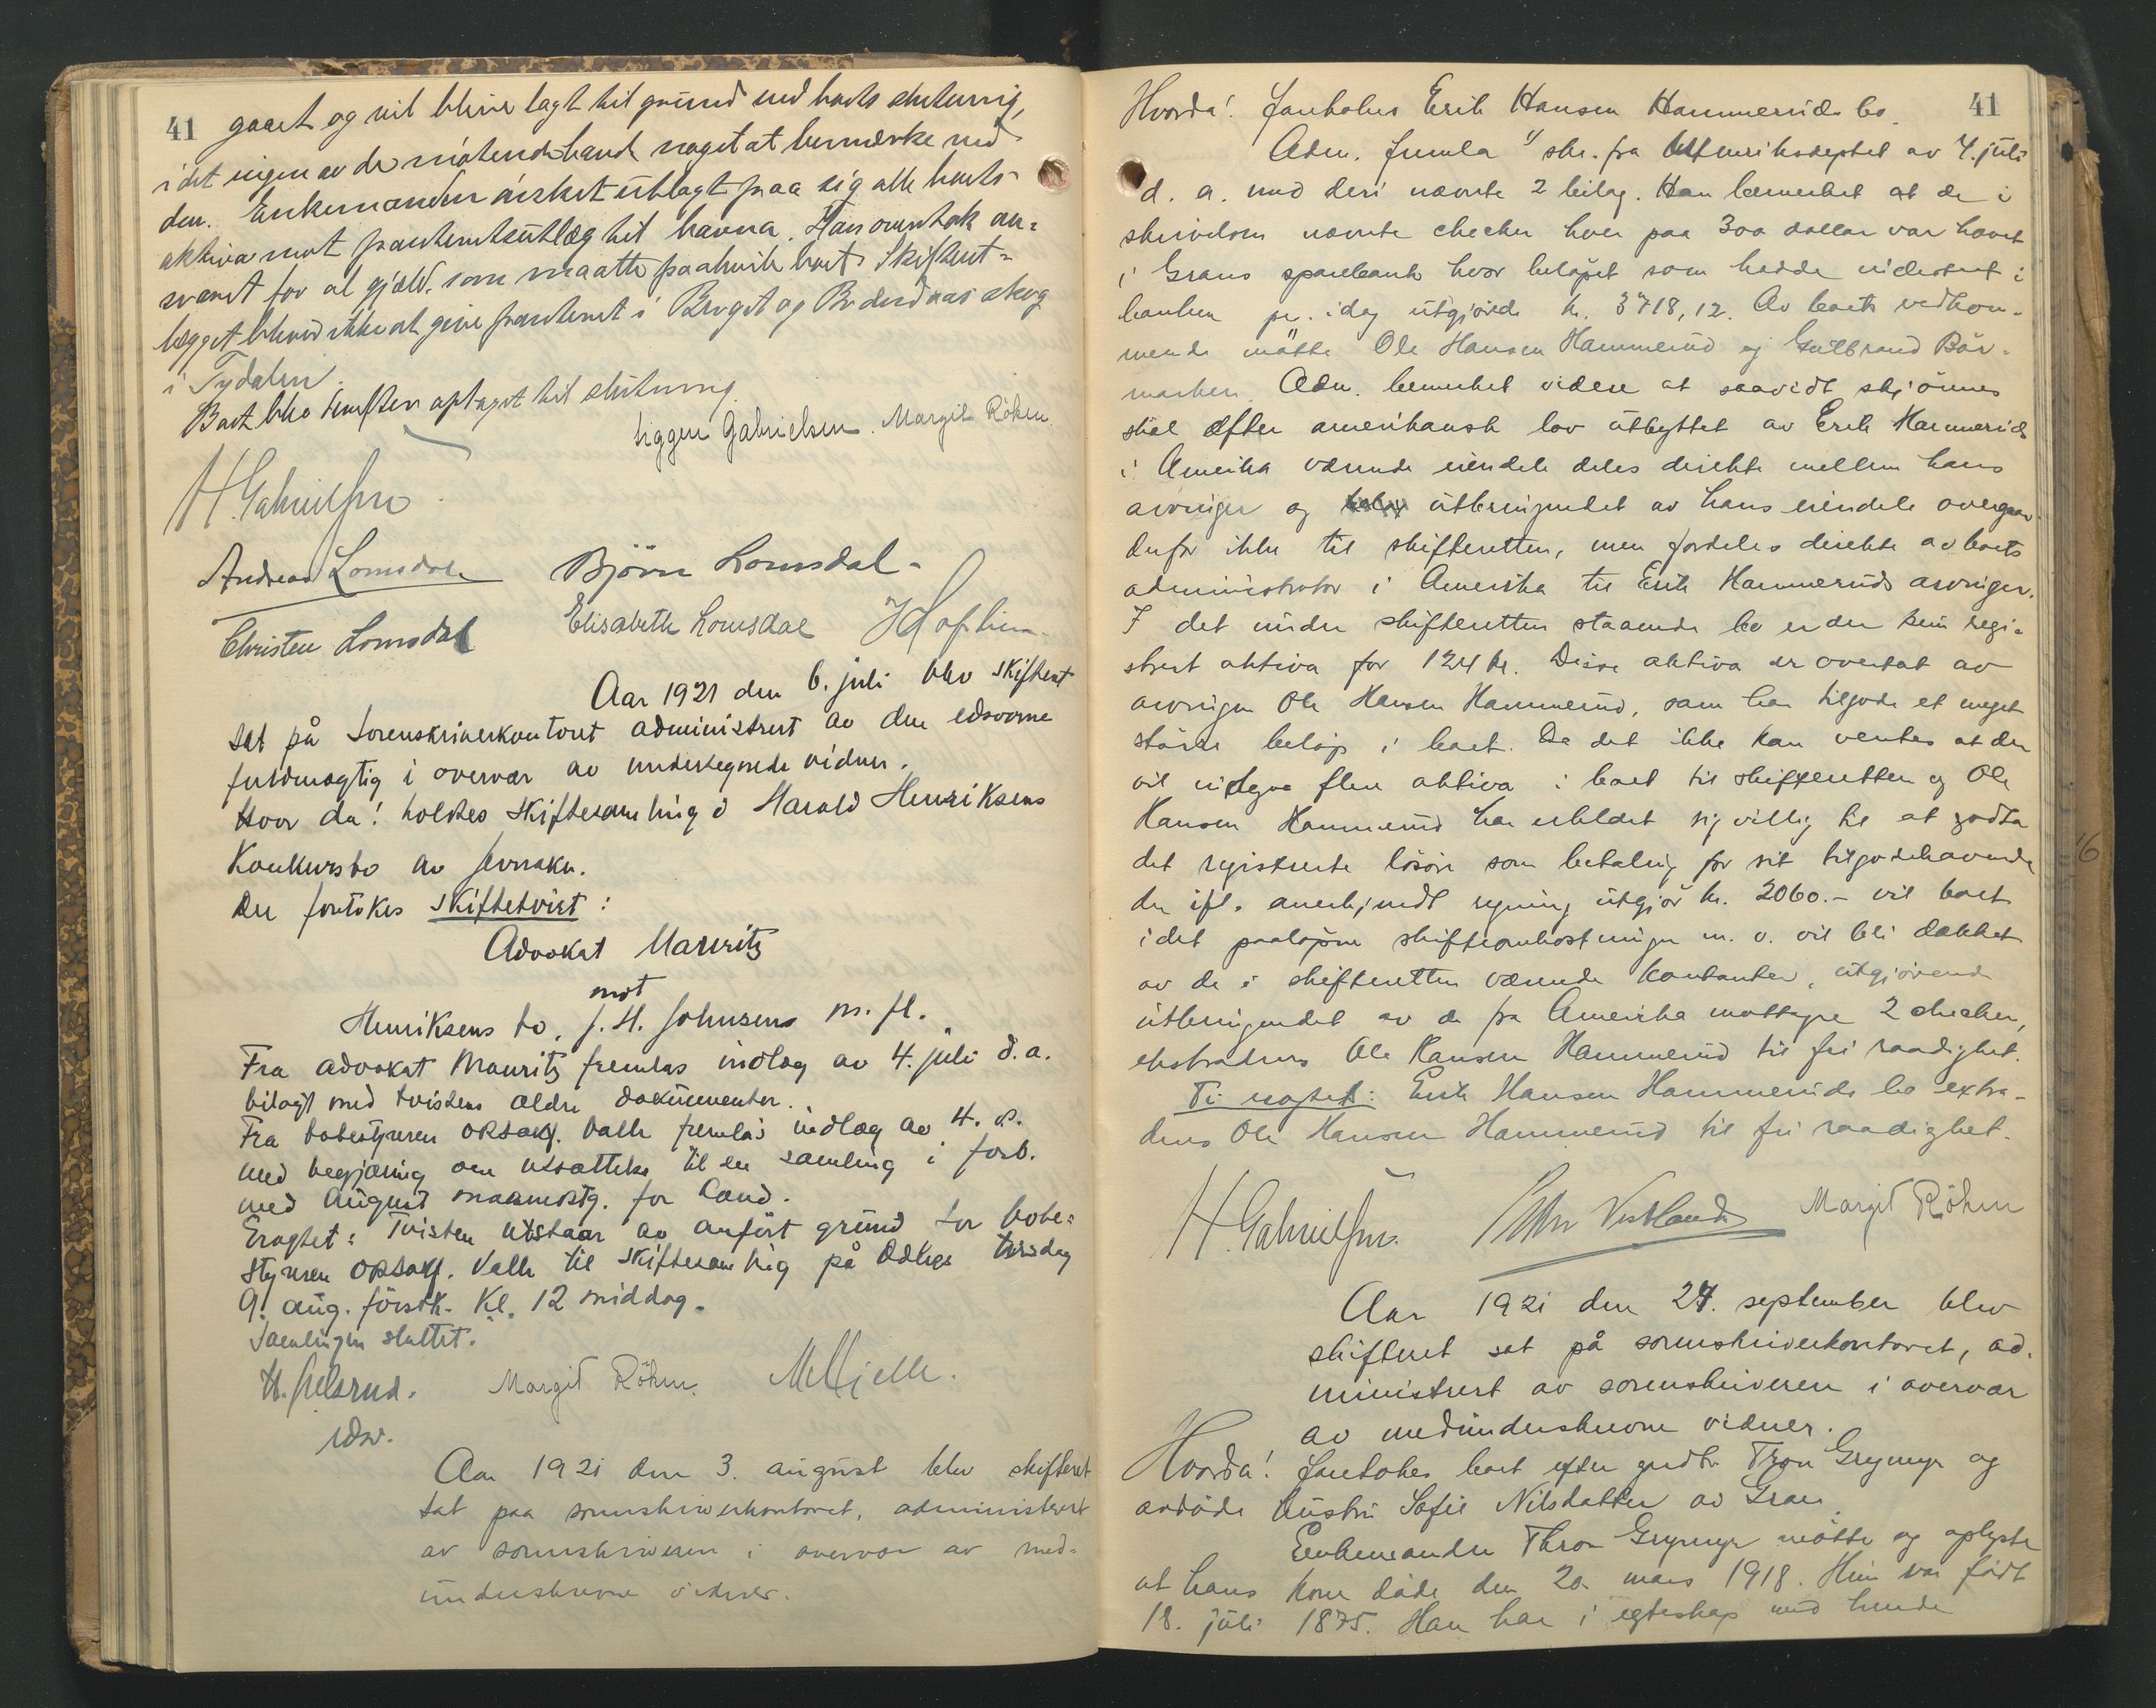 41 gaaet og vil blive lagt til grund ved boets slutning,
idet ingen av de møtende havde noget at bemærke ved
den. Enkemanden ønsket utlagt paa sig alle boets
aktiva mot panteretsutlæg til barna. Han overtok an=
svaret for al gjæld som maatte paahvile boet. Skifteret=
ten
i Tydalen.
Boet blev derefter optaget til slutning.
Gabrielsen. Margit Röhm.
H. Gabrielsen
Andreas Lomsdalen Björn Lomsdal.
Christen Lomsdal Elisabeth Lomsdal
Aar 1921 den 6. juli blev skifteret
sat på Sorenskriverkontoret administrert av den edsvorne
fuldmægtig i overvær av undertegnede vidner.
Hvor da! holdtes skiftesamling i Harald Henriksens
Konkursbo av Jevnaker.
Der foretokes skiftetvist:
Advokat Mauritz
mot
Henriksens bo, J. H. Johnsens m. fl.
Fra advokat Mauritz fremlas indlæg av 4. juli d. a.
bilagt med tvistens ældre dokumenter.
Fra bobestyreren oRsakf. Valle fremlas indlæg av 4. ds.
med begjæring om utsættelse til en samling i forb.
med august maanedstg. for Land.
Eragtet: Tvisten utstaar av anført grund for bobe=
styreren oRsakf. Valle til skiftesamling på Odlige tirsdag
9. aug. förstk. Kl. 12 middag.
Samlingen sluttet.
H. Margit Röhm.
edsv.
Aar 1921 den 3. august blev skifteret
sat paa sorenskriverkontoret, administrert
av sorenskriveren i overvær av med=
underskrevne vidner.
Hvorda! Foretokes Erik Hansen Hammeruds bo. 41
Adm. fremla 1/ skr. fra Utenriksdeptet av 4. juli
d. a. med deri nævnte 2 bilag. Han bemerket at de i
skrivelsen nævnte checker hver paa 300 dollar var hævet
i Grans sparebank hvor beløpet som hadde indestaat i
banken pr. idag utgjorde kr. 3718,12. Av boets vedkom-
mende mötte Ole Hansen Hammerud og Gulbrand Bör-
marken. Adm. bemerket videre at saavidt skjönnes
skal efter amerikansk lov utbyttet av Erik Hammeruds
i Amerika værende eiendele deles direkte mellem hans
arvinger og utbringendet av hans eiendele overgaar
derfor ikke til skifteretten, men fordeles direkte av boets
administrator i Amerika til Erik Hammeruds arvinger.
I det under skifteretten staaende bo er der kun regi=
strert aktiva for 124 kr. Disse aktiva er overtat av
arvingen Ole Hansen Hammerud, som har tilgode et meget
större beløp i boet. Da det ikke kan ventes at der
vil indgaa flere aktiva i boet til skifteretten og Ole
Hansen Hammerud har erklært sig villig til at godta
det registrerte lösöre som betaling for sit tilgodehavende
der ifl. anerkjendt regning utgjör kr. 2060.- vil boet
idet paalöpne skifteomkostninger m. v. vil bli dækket
av de i skifteretten værende kontanter, utgjörende
utbringendet av de fra Amerika mottagne 2 checker,
ekstraderes Ole Hansen Hammerud til fri raadighet.
Ti eragtet: Erik Hansen Hammeruds bo extra-
deres Ole Hansen Hammerud til fri raadighet.
H. Gabrielsen. Margit Röhm
Aar 1921 den 24. september blev
skifteret sat på sorenskriverkontoret, ad-
ministrert av sorenskriveren i overvær
av medunderskrevne vidner.
Hvorda! Foretokes boet efter Tron Grymyr og
avdöde hustru Sofie Nilsdatter av Gran.
Enkemanden Thron Grymyr mötte og oplyste
at hans kone döde den 20. mars 1918. Hun var födt
18. juli 1875. Han har i egteskap med hende